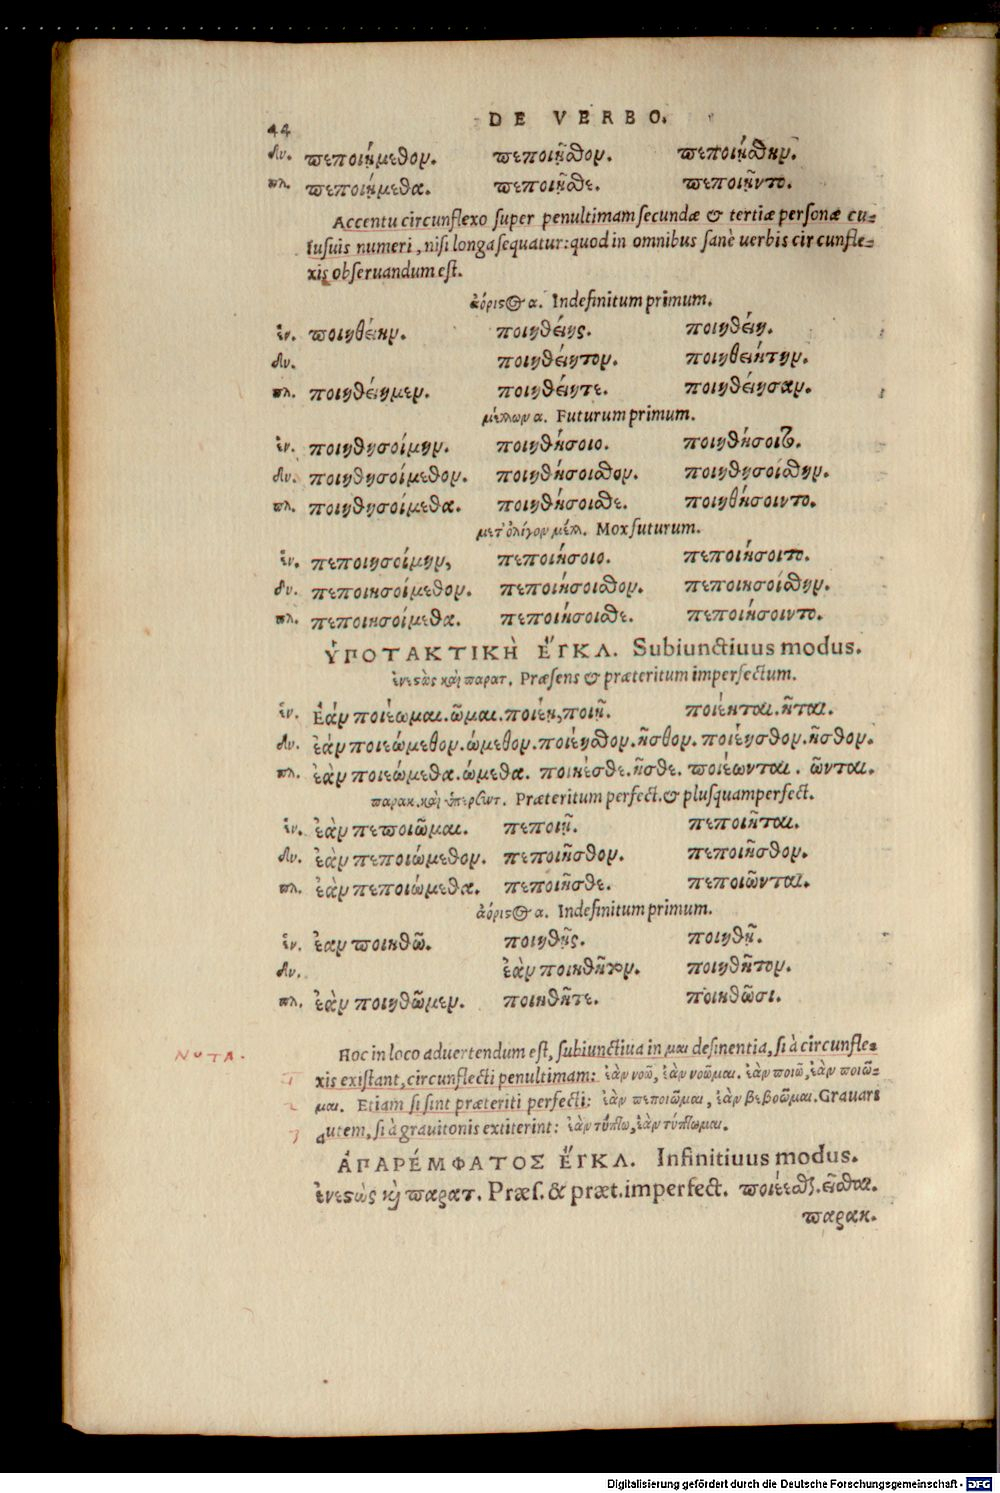 44 DE VERBO.
δυ. πεποιῄμεθον. πεποιῇσθον. πεποιῄσθην.
πλ. πεποιῄμεθα. πεποιῇσθε. πεποιῇντο.
Accentu circunflexo super penultimam secundæ & tertiæ personæ cu-
iusuis numeri, nisi longa sequatur: quod in omnibus sanè uerbis circunfle-
xis obseruandum est.
ἀόριστος α. Indefinitum primum.
ἑν. ποιηθείην. ποιηθείης. ποιηθείη.
δυ. ποιηθείητον. ποιηθειήτην.
πλ. ποιηθείημεν. ποιηθείητε. ποιηθείησαν.
μέλλων α. Futurum primum.
ἑν. ποιηθησοίμην. ποιηθήσοιο. ποιηθήσοιτο.
δυ. ποιηθησοίμεθον. ποιηθήσοισθον. ποιηθησοίσθην.
πλ. ποιηθησοίμεθα. ποιηθήσοισθε. ποιηθήσοιντο.
μετ' ὀλίγον μέλλ. Mox futurum.
ἑν. πεποιησοίμην, πεποιήσοιο. πεποιήσοιτο.
δυ. πεποιησοίμεθον. πεποιήσοισθον. πεποιησοίσθην.
πλ. πεποιησοίμεθα. πεποιήσοισθε. πεποιήσοιντο.
ὙΠΟΤΑΚΤΙΚῊ ἜΓΚΛ. Subiunctiuus modus.
ἐνεστὼς καὶ παρατ. Præsens & præteritum imperfectum.
ἑν. Ἐὰν ποιέωμαι. ῶμαι. ποιέῃ, ποιῇ. ποιέηται. ῆται.
δυ. ἐὰν ποιεώμεθον. ώμεθον. ποιέησθον. ῆσθον. ποιέησθον. ῆσθον.
πλ. ἐὰν ποιεώμεθα. ώμεθα. ποιέησθε. ῆσθε. ποιέωνται. ῶνται.
παρακ. καὶ ὑπερσυντ. Præteritum perfect. & plusquamperfect.
ἑν. ἐὰν πεποιῶμαι. πεποιῇ. πεποιῆται.
δυ. ἐὰν πεποιώμεθον. πεποιῆσθον. πεποιῆσθον.
πλ. ἐὰν πεποιώμεθα. πεποιῆσθε. πεποιῶνται.
ἀόριστος α. Indefinitum primum.
ἑν. ἐαν ποιηθῶ. ποιηθῇς. ποιηθῇ.
δυ. ἐὰν ποιηθῆτον. ποιηθῆτον.
πλ. ἐὰν ποιηθῶμεν. ποιηθῆτε. ποιηθῶσι.
NOTA. Hoc in loco aduertendum est, subiunctiua in μαι desinentia, si à circunfle-
1 xis existant, circunflecti penultimam: ἐὰν νοῶ, ἐὰν νοῶμαι. ἐὰν ποιῶ, ἐὰν ποιῶ-
2 μαι. Etiam si sint præteriti perfecti: ἐὰν πεποιῶμαι, ἐὰν βεβοῶμαι. Grauari
3 autem, si à grauitonis extiterint: ἐὰν τύπτω, ἐὰν τύπτωμαι.
ἈΠΑΡΈΜΦΑΤΟΣ ἜΓΚΛ. Infinitiuus modus.
ἐνεστὼς καὶ παρατ. Præs. & præt. imperfect. ποιέεσθαι. εῖσθαι.
παρακ.
Digitalisierung gefördert durch die Deutsche Forschungsgemeinschaft - DFG